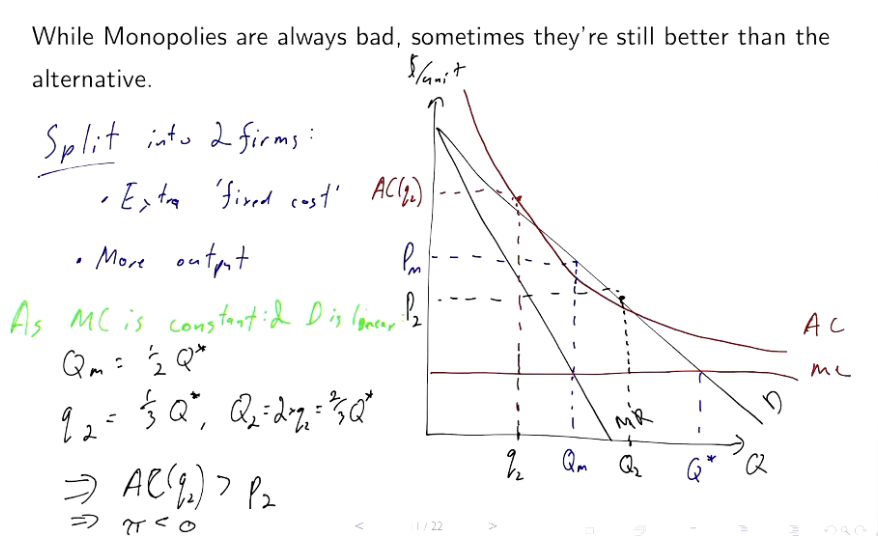 While Monopolies are always bad, sometimes they're still better than the
alternative.
$/unit
Split into 2 firms:
• Extra 'fixed cost'
• More output
As MC is constant & D is linear:
Qm = 1/2 Q*
q2 = 1/3 Q*, Q2 = 2×q2 = 2/3 Q*
⇒ AC(q2) > P2
⇒ π < 0
AC(q2)
Pm
P2
AC
MC
D
MR
q2
Qm
Q2
Q*
Q
1 / 22